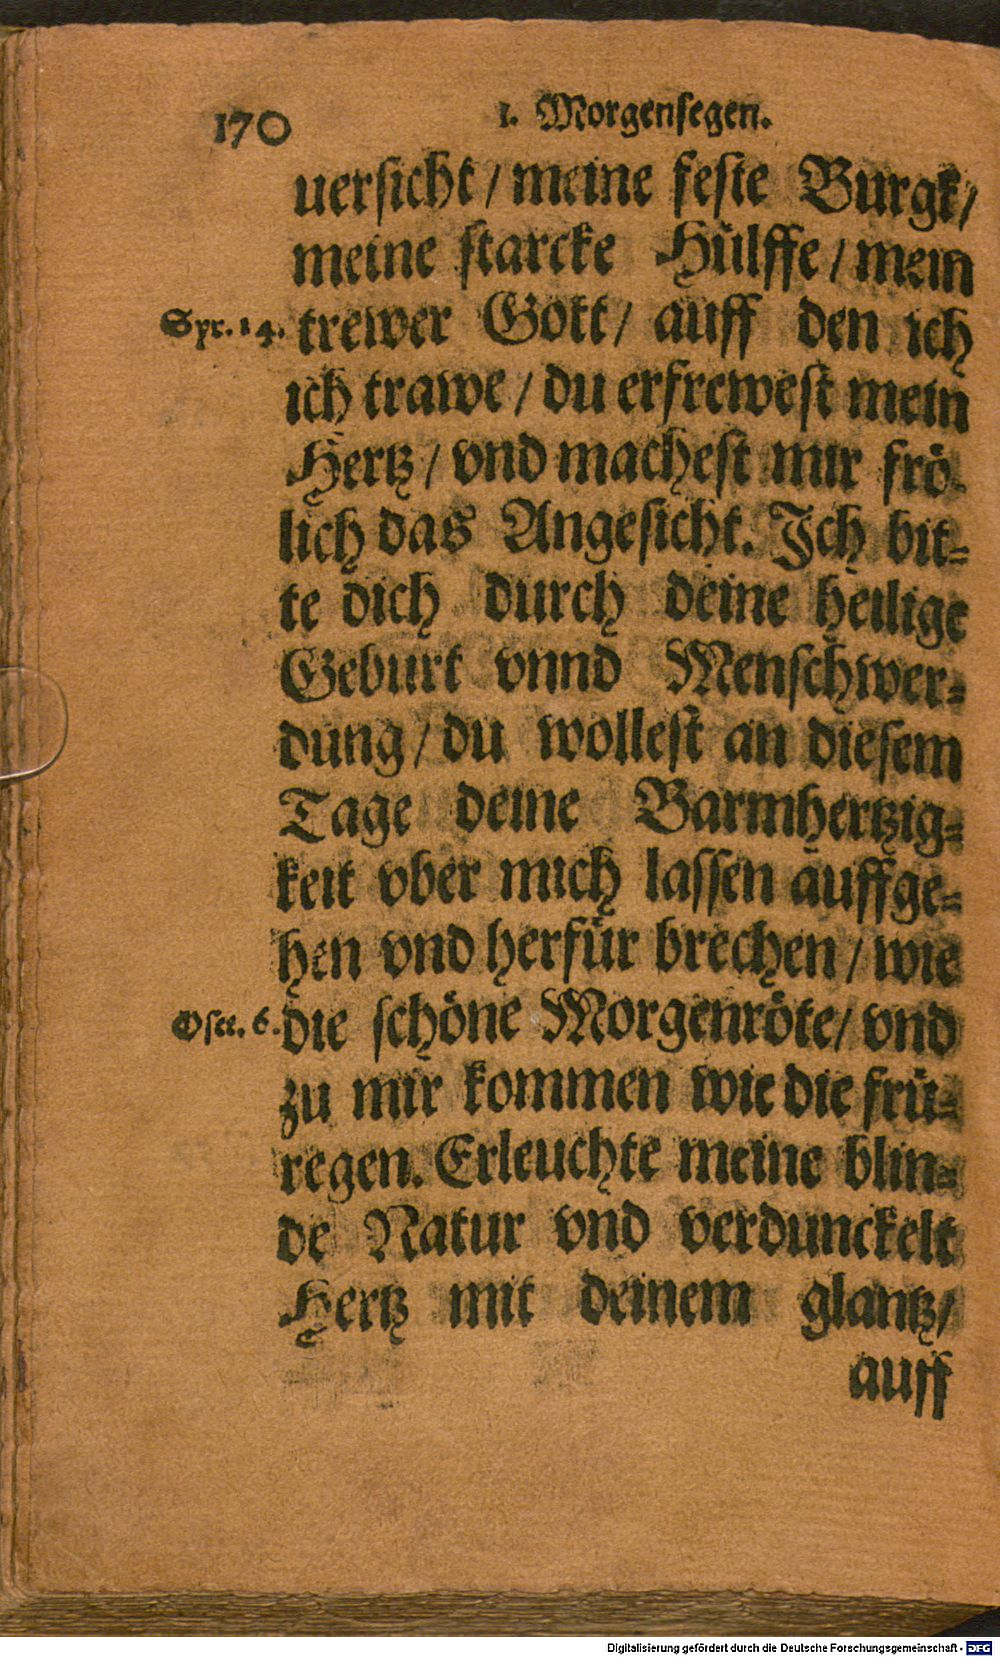 170
1. Morgensegen.
uersicht / meine feste Burgk /
meine starcke Hülffe / mein
Syr. 14. trewer Gott / auff den ich
ich trawe / du erfrewest mein
Hertz / vnd machest mir frö-
lich das Angesicht. Ich bit-
te dich durch deine heilige
Geburt vnnd Menschwer-
dung / du wollest an diesem
Tage deine Barmhertzig-
keit vber mich lassen auffge-
hen vnd herfür brechen / wie
Osee. 6. die schöne Morgenröte / vnd
zu mir kommen wie die frü-
regen. Erleuchte meine blin-
de Natur vnd verdunckelt
Hertz mit deinem glantz /
auff
Digitalisierung gefördert durch die Deutsche Forschungsgemeinschaft - DFG